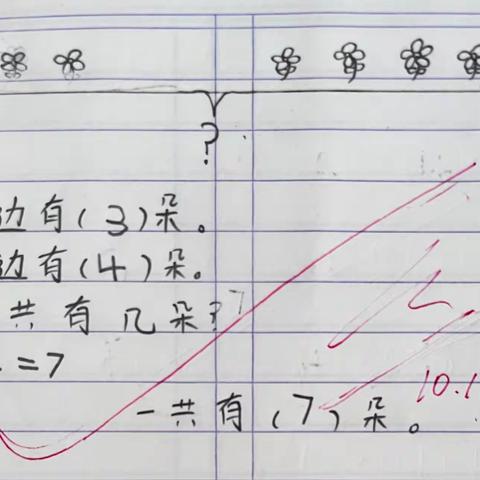 ?
边有(3)朵。
边有(4)朵。
共有几朵?7
=7
一共有(7)朵。
10.1